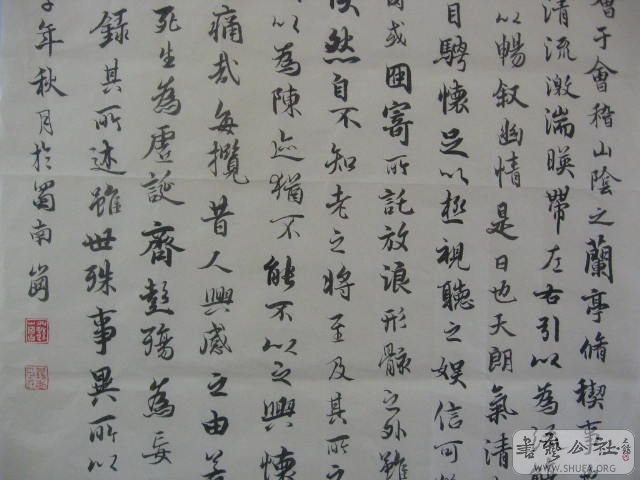 會于會稽山陰之蘭亭脩稧事
清流激湍暎帶左右引以為流
以暢叙幽情是日也天朗氣清
目騁懷足以極視聽之娛信可
或因寄所託放浪形骸之外雖
然自不知老之將至及其所之
以為陳迹猶不能不以之興懷
痛哉每攬昔人興感之由若
死生為虛誕齊彭殤為妄
錄其所述雖世殊事異所以
年秋月於蜀南
書藝公社
WWW.SHUFA.ORG